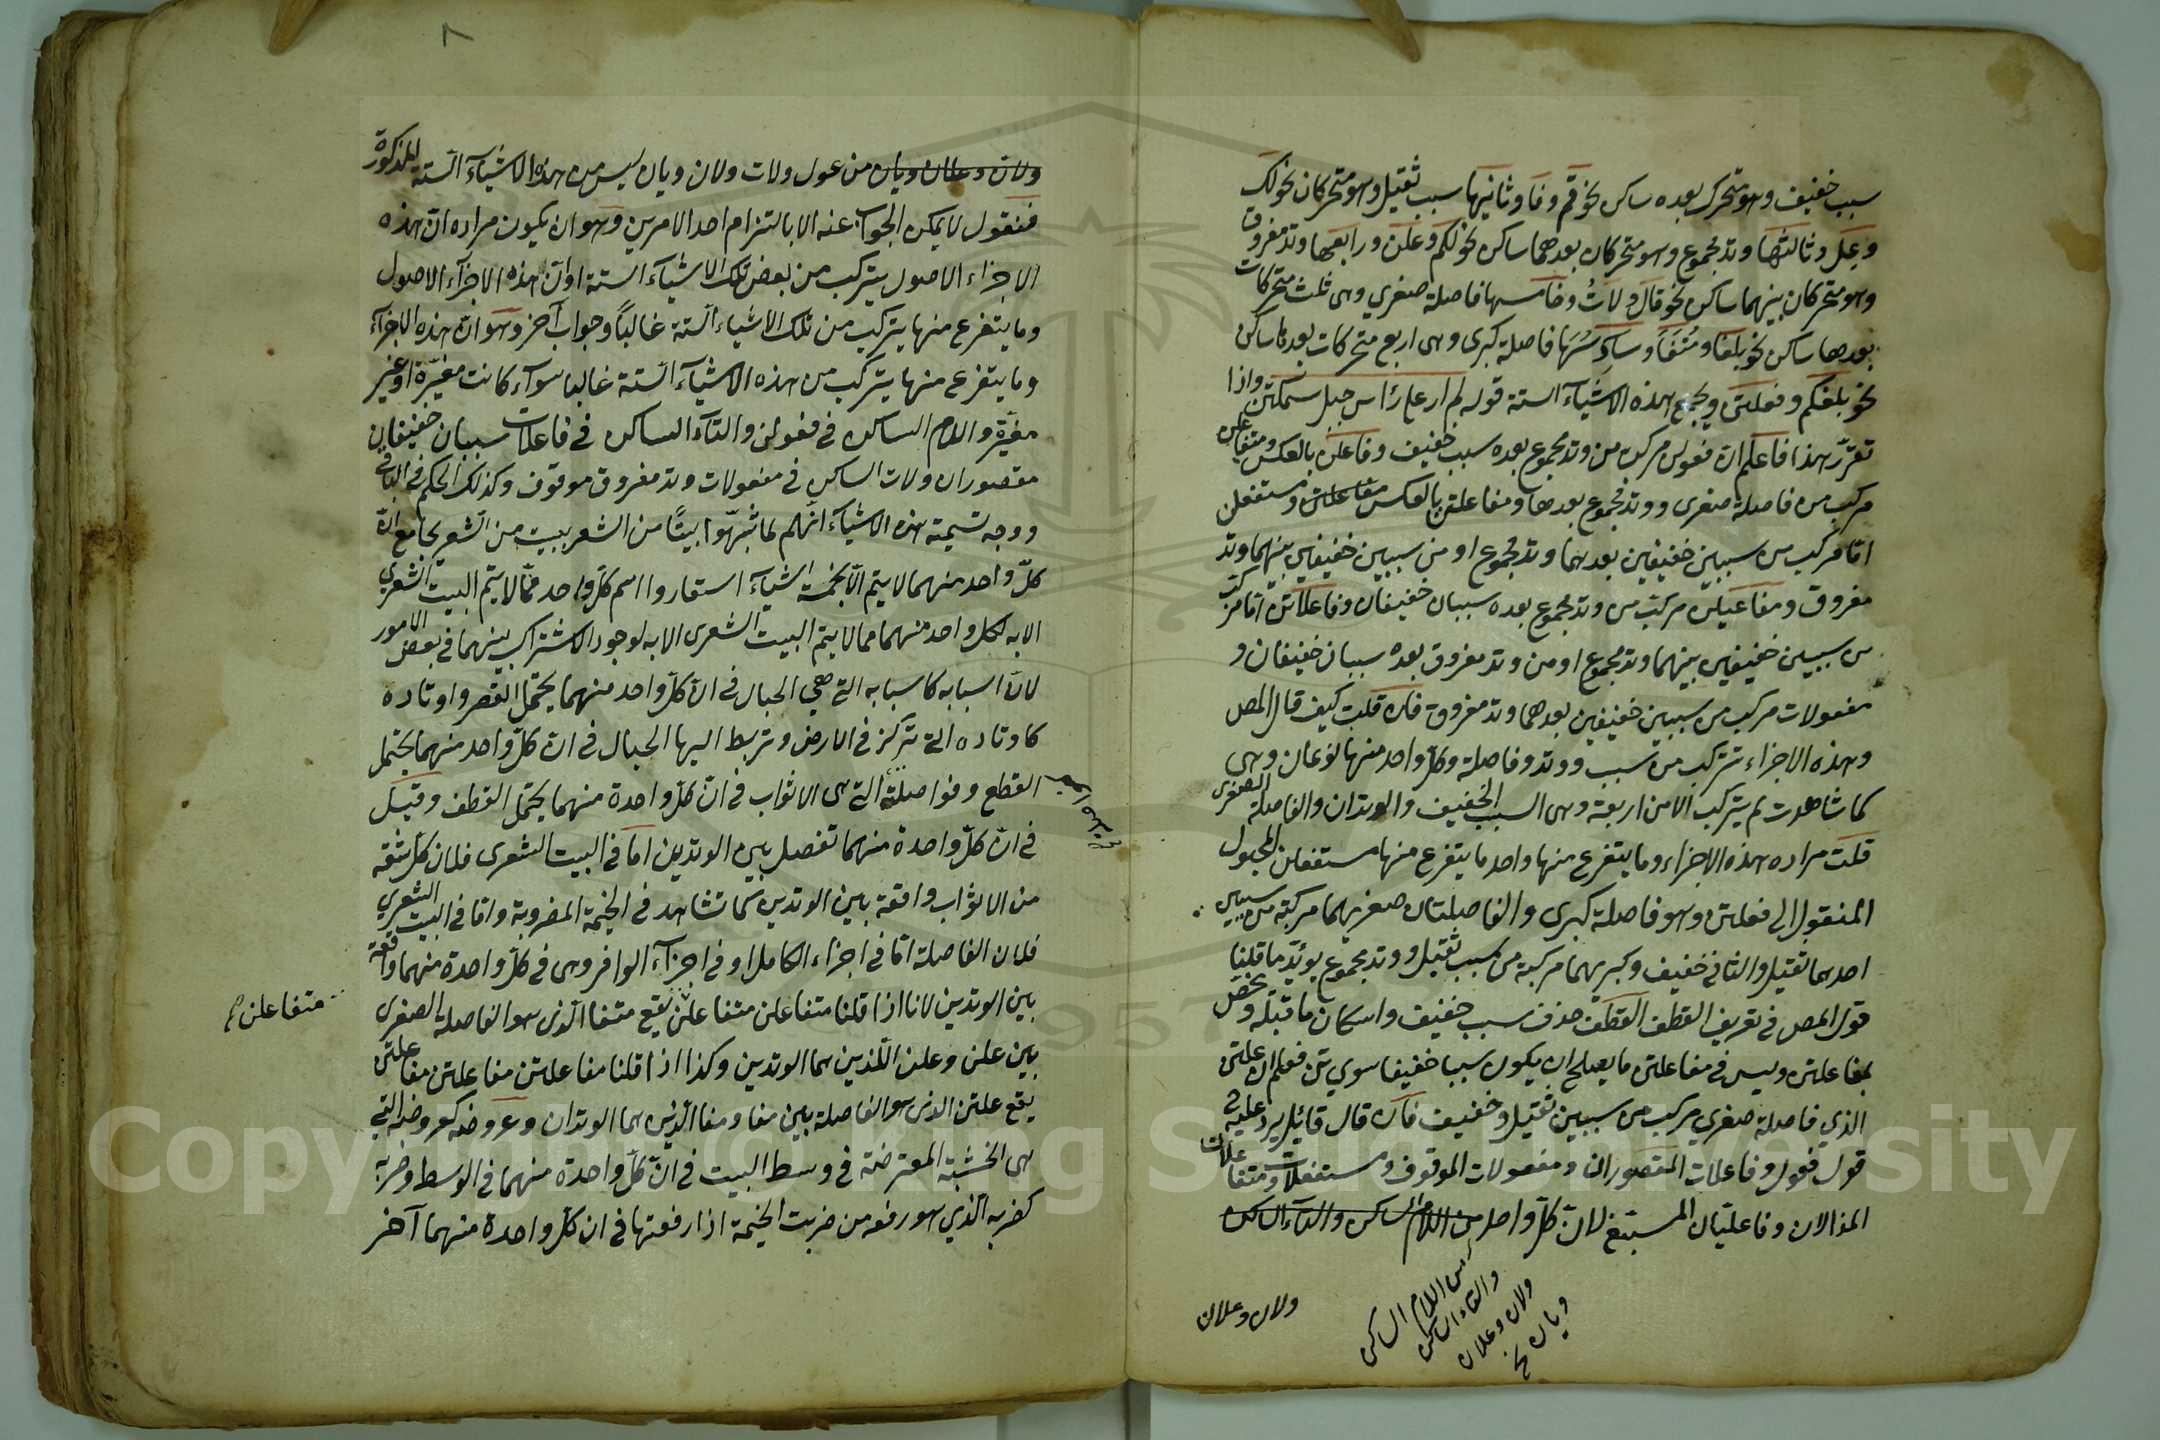 سبب خفيف وهو متحرك بعده ساكن نحو قم وفا وثانيها سبب ثقيل وهو متحركان نحو لك
وعل وثالثها وتد مجموع وهو متحركان بعدهما ساكن نحو لكم وعلن ورابعها وتد مفروق
وهو متحركان بينهما ساكن نحو قال ولات وخامسها فاصلة صغرى وهى ثلث متحركات
بعدها ساكن نحو بلغا ومتفا وسادسها فاصلة كبرى وهى اربع متحركات بعدها ساكن
نحو بلغكم وفعلتن ويجمع هذه الاشياء الستة قوله لم ار على رأس جبل سمكتن واذا
تقرر هذا فاعلم ان فعولن مركب من وتد مجموع بعده سبب خفيف وفاعلن بالعكس ومتفاعلن
مركب من فاصلة صغرى ووتد مجموع بعدها ومفاعلتن بالعكس مفاعلتن ومستفعلن
اما مركب من سببين خفيفين بعدهما وتد مجموع او من سببين خفيفين بينهما وتد
مفروق ومفاعيلن مركب من وتد مجموع بعده سببان خفيفان وفاعلاتن اما مركب
من سببين خفيفين بينهما وتد مجموع او من وتد مفروق بعده سببان خفيفان و
مفعولات مركب من سببين خفيفين بعدهما وتد مفروق فان قلت كيف قال المص
وهذه الاجزاء تتركب من سبب ووتد وفاصلة وكل واحد منها نوعان وهى
كما شاهدت لم يتركب الا من اربعة وهى السبب الخفيف والوتدان والفاصلة الصغرى
قلت مراده هذه الاجزاء وما يتفرع منها واحد ما يتفرع منها مستفعلن المخبول
المنقول الى فعلتن وهو فاصلة كبرى والفاصلتان صغريهما مركبة من سببين
احدهما ثقيل والثانى خفيف وكبريهما مركبة من سبب ثقيل ووتد مجموع يؤيد ما قلنا
قول المص فى تعريف القطف القطف حذف سبب خفيف واسكان ما قبله ويختص
بمفاعلتن وليس فى مفاعلتن ما يصلح ان يكون سببا خفيفا سوى تن فعلم ان علتن
الذي فاصلة صغري مركب من سببين ثقيل وخفيف فان قال قائل يرد عليه فى
قول فعول وفاعلات المقصوران ومفعولات الموقوف ومستفعلات ومتفاعلات
المذالان وفاعليان المسبغ لان كل واحد من اللام الساكن والتاء الساكن
من اللام الساكن
والتاء الساكن
ولان وعلان
ويان
ولان وعلان
ولان وعلان ويان من عول ولات ولان ويان ليس من هذه الاشياء الستة المذكورة
فنقول لا يمكن الجواب عنه الا بالتزام احد الامرين وهو ان يكون مراده ان هذه
الاجزاء الاصول يتركب من بعض تلك الاشياء الستة او ان هذه الاجزاء الاصول
وما يتفرع منها يتركب من تلك الاشياء الستة غالبًا وجواب آخر وهو ان هذه الاجزاء
وما يتفرع منها يتركب من هذه الاشياء الستة غالبا سواء كانت مغيرة او غير
مغيرة واللام الساكن فى فعولن والتاء الساكن فى فاعلات سببان خفيفان
مقصوران ولات الساكن فى مفعولات وتد مفروق موقوف وكذلك الحكم فى الباقى
ووجه تسمية هذه الاشياء انهم لما شبهوا بيتًا من الشعر ببيت من الشعر بجامع ان
كل واحد منهما لا يتم الا بخمسة اشياء استعاروا اسم كل واحد مما لا يتم البيت الشعري
الا به لكل واحد منهما مما لا يتم البيت الشعرى الا به لوجود الاشتراك بينهما فى بعض الامور
لان اسبابه كاسبابه التى هي الحبال فى ان كل واحد منهما يحتمل القصر واوتاده
كاوتاده التى تركز فى الارض وتربط اليها الحبال فى ان كل واحد منهما يحتمل
القطع وفواصله التى هى الاثواب فى ان كل واحدة منهما يحتمل القطف وقيل
فى ان كل واحدة منهما تفصل بين الوتدين اما فى البيت الشعرى فلان كل شقة
من الاثواب واقعة بين الوتدين كما تشاهد فى الخيمة المضروبة واما فى البيت الشعري
فلان الفاصلة اما فى اجزاء الكامل او فى اجزاء الوافر وهى فى كل واحدة منهما واقعة
بين الوتدين لانا اذا قلنا متفاعلن متفاعلن يقع متفا الذى هو الفاصلة الصغرى
متفاعلن
بين علن وعلن اللذين هما الوتدين وكذا اذا قلنا مفاعلتن مفاعلتن مفاعلتن
يقع علتن الذى هو الفاصلة بين مفا ومفا الذين هما الوتدان وعروضه كعروضه التى
هى الخشبة المعترضة فى وسط البيت فى ان كل واحدة منهما فى الوسط وضربه
كضربه الذي هو رفعه من ضربت الخيمة اذا رفعتها فى ان كل واحدة منهما آخر
Copyright © King Saud University
1957